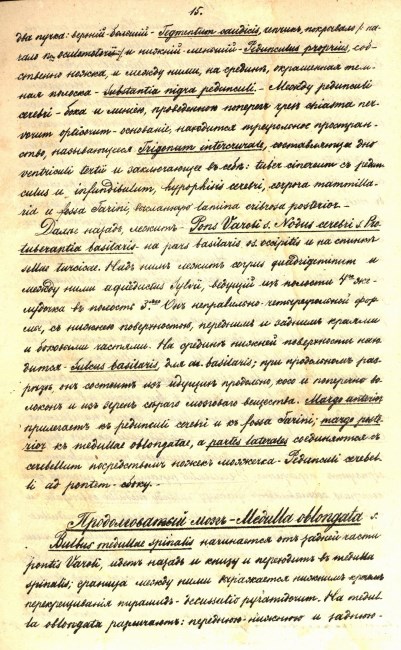 15.
два пучка: верхній большій - Tegmentum caudicis, чепчик, покрывало / на-
чало n. oculomotorii / и нижній меньшій - Pedunculus proprius, соб-
ственно ножка, и между ними, на срединѣ, окрашенная тем-
ная плоска - Substantia nigra pedunculi. - Между pedunculi
cerebri - бока и линіею, проведенною поперегъ чрез chiasma ner-
vorum opticorum - основаніе находится треугольное простран-
ство, называющееся Trigonum intercrurale, составляющее дно
ventriculi tertii и заключающее въ себѣ: tuber cinereum съ pedun-
culus и infundibulum, hypophisis cerebri, corpora mammilla-
ria и fossa Tarini, высланную lamina cribrosa posterior.
Далѣе назадъ, лежитъ - Pons Varoli s. Nodus cerebri s. Pro-
tuberantia basilaris на pars basilaris os. occipitis и на спинкѣ
sellae turcicae. Надъ нимъ лежитъ corpus quadrigeminum и
между ними aquaeductus Sylvii, ведущій изъ полости 4го же-
лудочка въ полость 3го. Онъ неправильно-четыреугольной фор-
мы, съ нижнею поверхностью, переднимъ и заднимъ краями
и боковыми частями. На срединѣ нижней поверхности нахо-
дится - Sulcus basilaris, для ar. basilaris; при продольномъ раз-
рѣзѣ, онъ состоитъ изъ идущихъ продольно, косо и поперечно во-
локонъ и изъ зеренъ сѣраго мозговаго вещества. Margo anterior
прилегаетъ къ pedunculi cerebri и къ fossa Tarini; margo poste-
rior къ medullae oblongatae, а partes laterales соединяются съ
cerebellum посредствомъ ножекъ мозжечка - Pedunculi cerebel-
li ad pontem - сбоку. -
Продолговатый мозгъ - Medulla oblongata s.
Bulbus medullae spinalis начинается отъ задней части
pontis Varoli, идетъ назадъ и книзу и переходитъ въ medulla
spinalis; граница между ними выражается нижнимъ краемъ
перекрещиванія пирамидъ - decussatio pyramidorum. На medul-
la oblongata различаютъ: переднюю-нижнюю и заднюю-